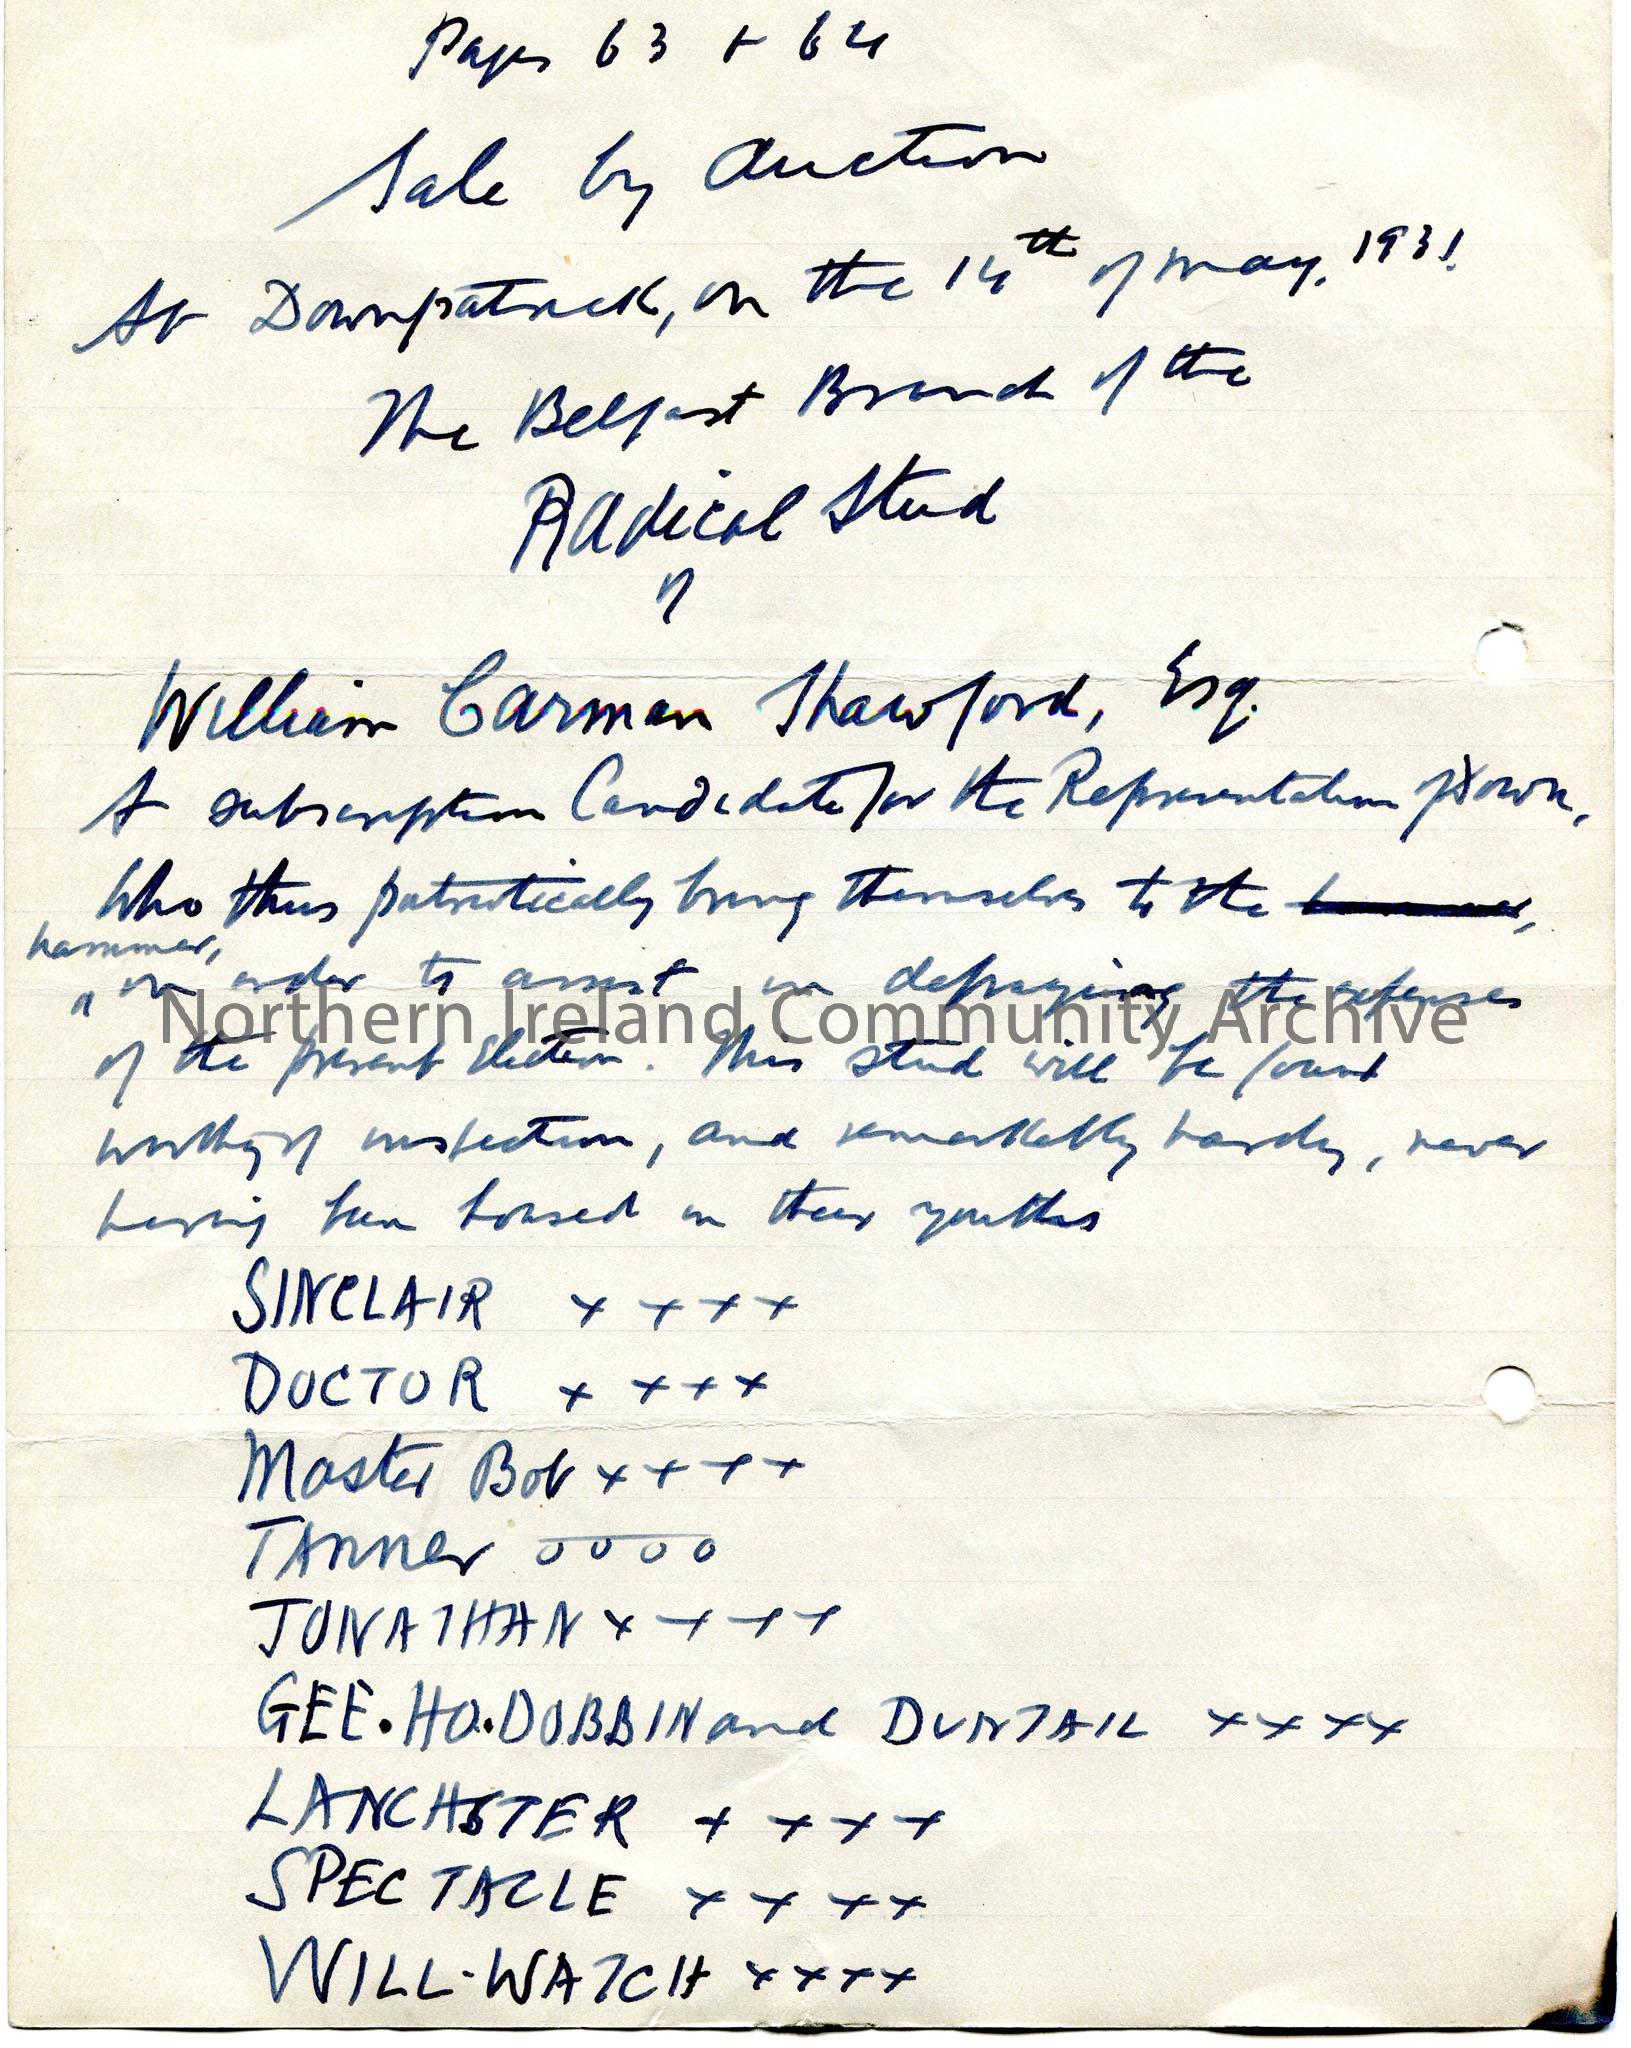 Pages 63 + 64
Sale by Auction
At Downpatrick, on the 14th of May, 1931.
The Belfast Branch of the
RAdical Stud
of
William Carman Shawford, Esq.
A subscription Candidate for the Representation of Down,
Who thus patriotically bring themselves to the
hammer,
in order to assist in defraying the expenses
Northern Ireland Community Archive
of the present Election. This stud will be found
worthy of inspection, and remarkably hardy, never
having been housed in their youths
SINCLAIR x x x x
DOCTOR x x x x
Master Bob x x x x
TAnner o o o o
JONATHAN x x x x
GEE.HO.DOBBIN and DUNTAIL x x x x
LANCHSTER x x x x
SPECTACLE x x x x
WILL-WATCH x x x x